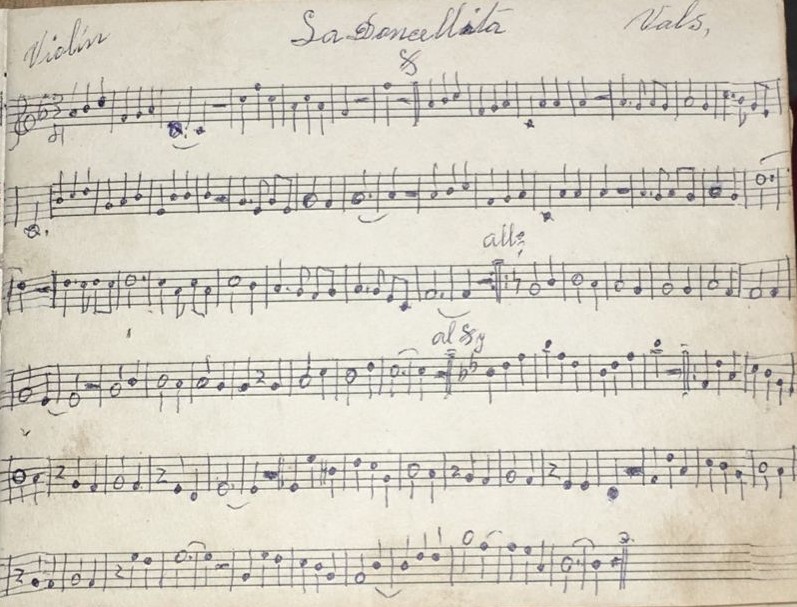 Violín La Doncellita Vals,
all:
al